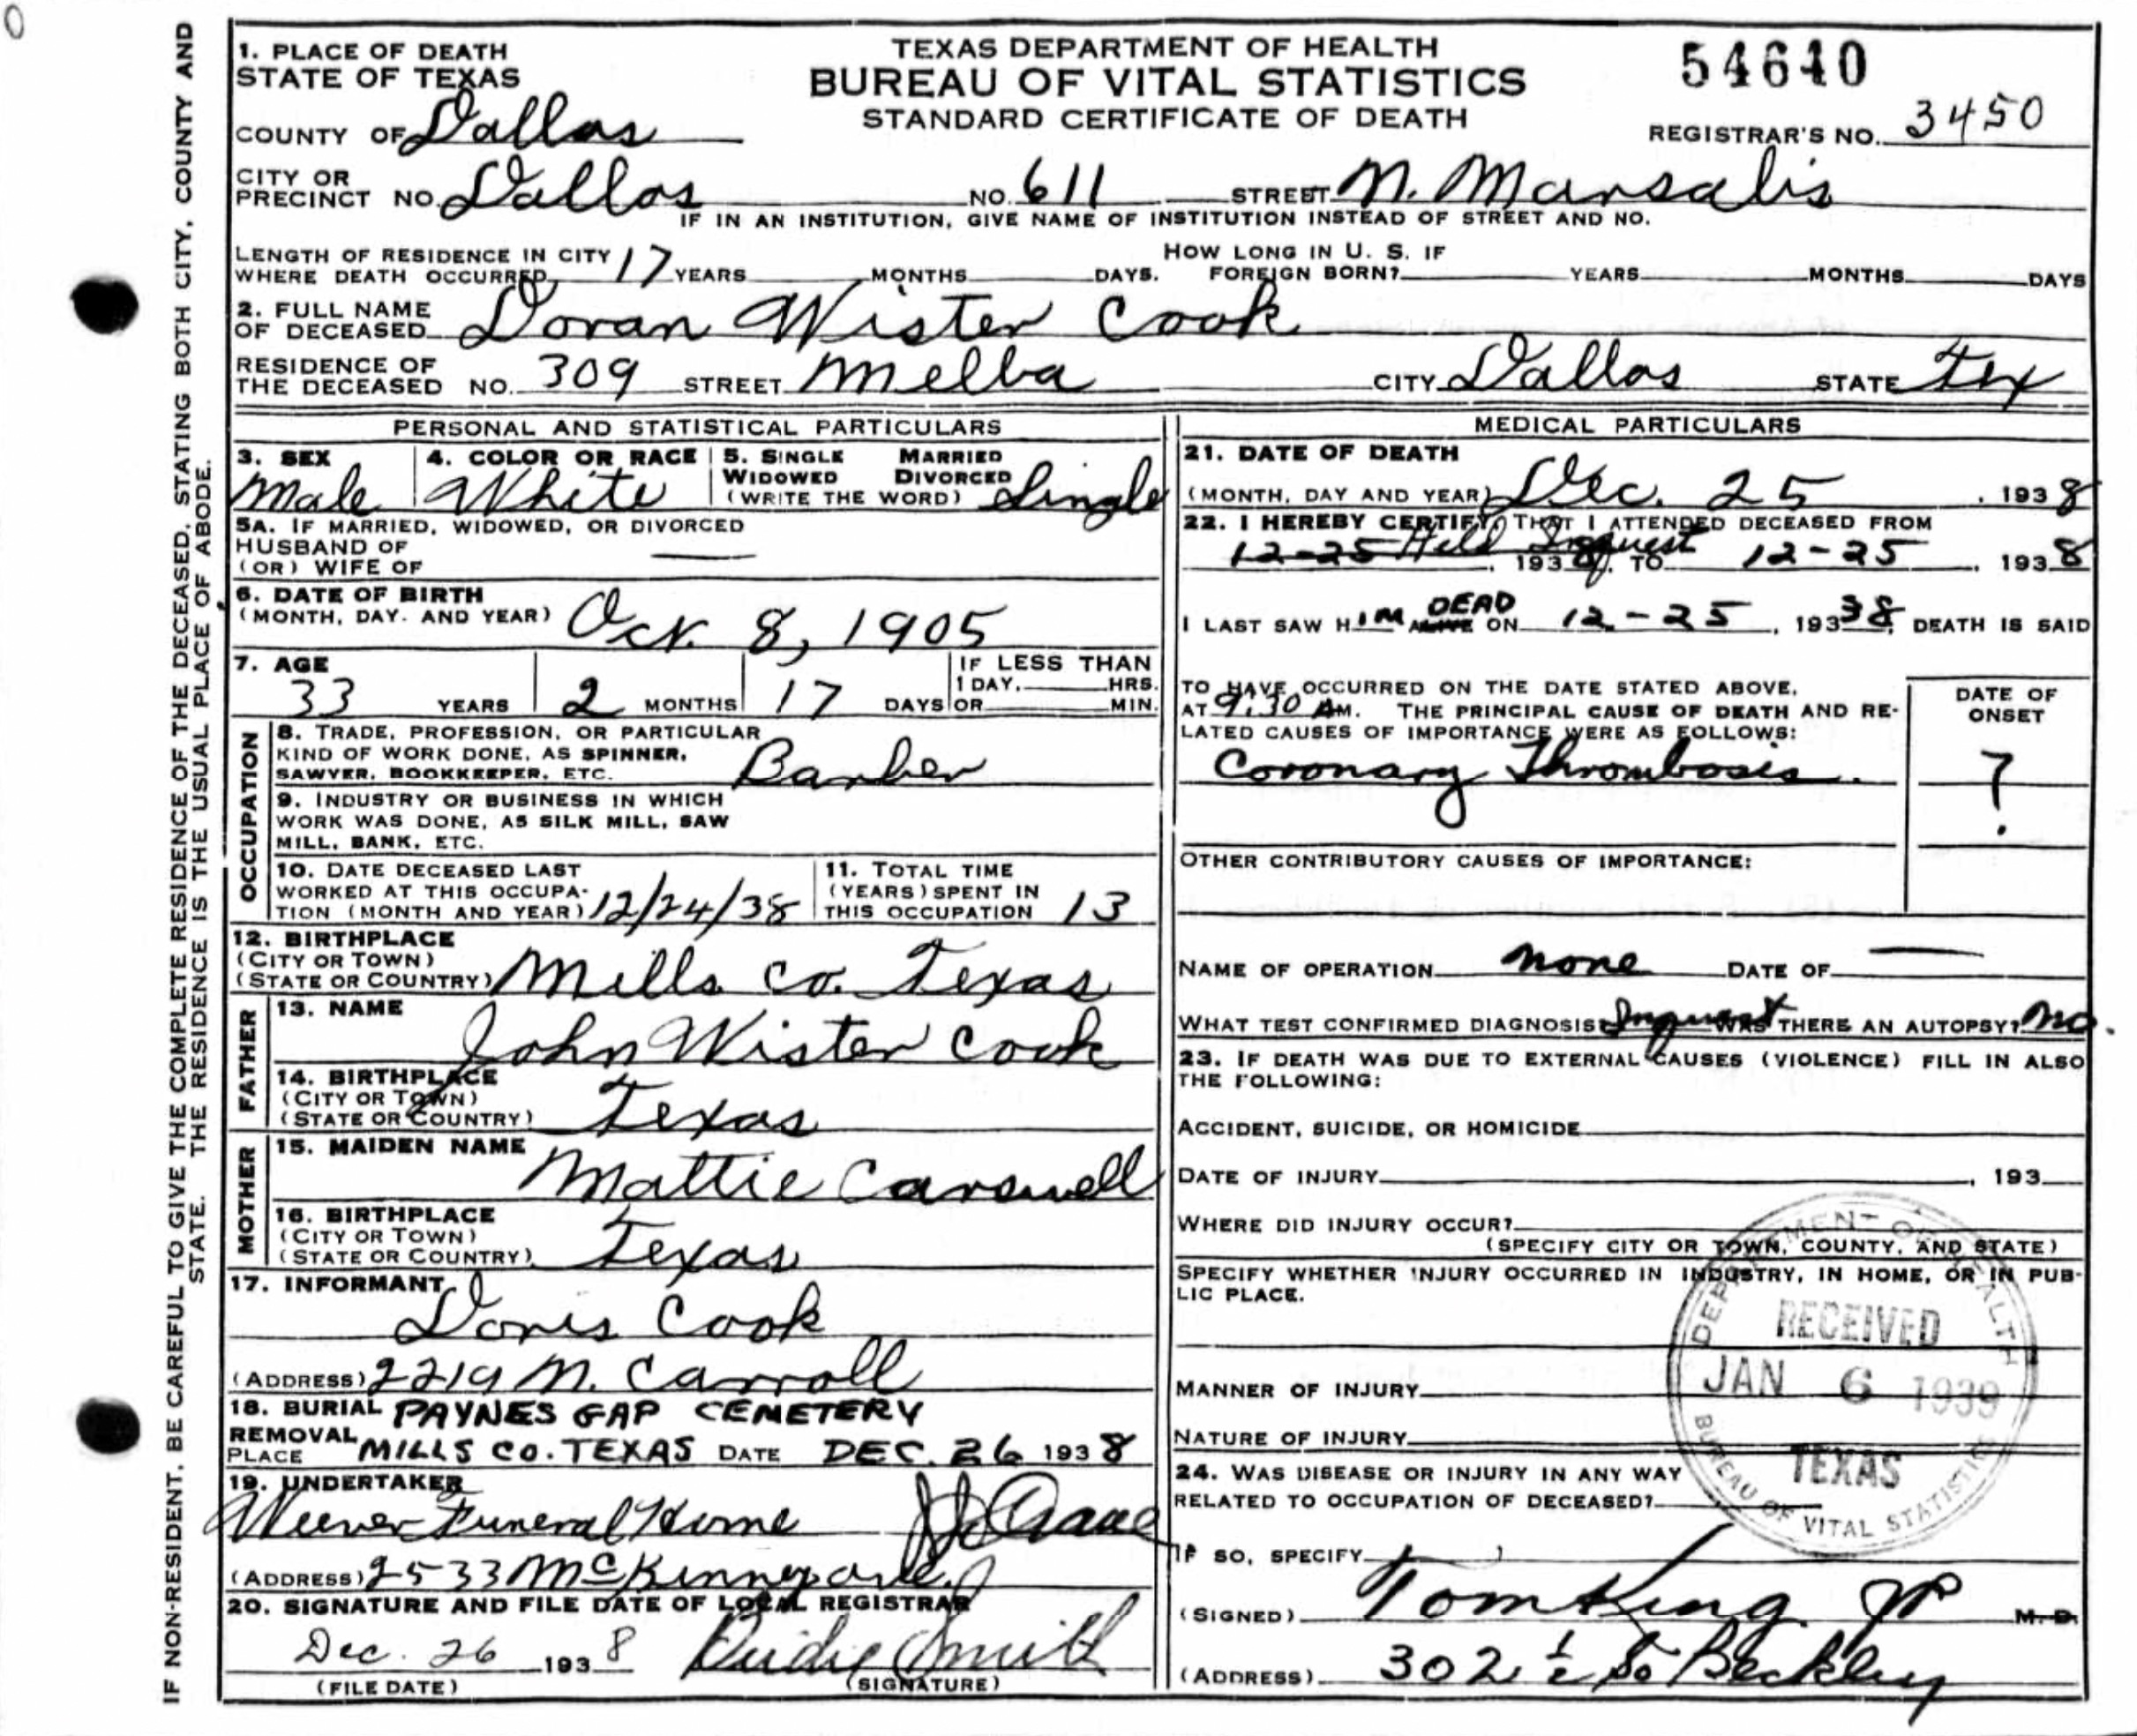 TEXAS DEPARTMENT OF HEALTH
BUREAU OF VITAL STATISTICS
STANDARD CERTIFICATE OF DEATH
54640
REGISTRAR'S NO. 3450
1. PLACE OF DEATH
STATE OF TEXAS
COUNTY OF Dallas
CITY OR PRECINCT NO. Dallas NO. 611 STREET N. Marsalis
IF IN AN INSTITUTION, GIVE NAME OF INSTITUTION INSTEAD OF STREET AND NO.
LENGTH OF RESIDENCE IN CITY WHERE DEATH OCCURRED 17 YEARS MONTHS DAYS. HOW LONG IN U. S. IF FOREIGN BORN? YEARS MONTHS DAYS
2. FULL NAME OF DECEASED Doran Wister Cook
RESIDENCE OF THE DECEASED NO. 309 STREET Melba CITY Dallas STATE Tex
PERSONAL AND STATISTICAL PARTICULARS
3. SEX Male
4. COLOR OR RACE White
5. SINGLE MARRIED WIDOWED DIVORCED (WRITE THE WORD) Single
5A. IF MARRIED, WIDOWED, OR DIVORCED
HUSBAND OF
(OR) WIFE OF —
6. DATE OF BIRTH
(MONTH, DAY. AND YEAR) Oct. 8, 1905
7. AGE
33 YEARS 2 MONTHS 17 DAYS IF LESS THAN 1 DAY, HRS. OR MIN.
OCCUPATION
8. TRADE, PROFESSION, OR PARTICULAR
KIND OF WORK DONE, AS SPINNER,
SAWYER, BOOKKEEPER, ETC. Barber
9. INDUSTRY OR BUSINESS IN WHICH
WORK WAS DONE, AS SILK MILL, SAW
MILL, BANK, ETC.
10. DATE DECEASED LAST
WORKED AT THIS OCCUPA-
TION (MONTH AND YEAR) 12/24/38
11. TOTAL TIME
(YEARS) SPENT IN
THIS OCCUPATION 13
12. BIRTHPLACE
(CITY OR TOWN)
(STATE OR COUNTRY) Mills Co. Texas
FATHER
13. NAME
John Wister Cook
14. BIRTHPLACE
(CITY OR TOWN)
(STATE OR COUNTRY) Texas
MOTHER
15. MAIDEN NAME
Mattie Carswell
16. BIRTHPLACE
(CITY OR TOWN)
(STATE OR COUNTRY) Texas
17. INFORMANT
Doris Cook
(ADDRESS) 2219 N. Carroll
18. BURIAL PAYNES GAP CEMETERY
REMOVAL
PLACE MILLS CO. TEXAS DATE DEC. 26 1938
19. UNDERTAKER
Weever Funeral Home
(ADDRESS) 2533 McKinney ave.
20. SIGNATURE AND FILE DATE OF LOCAL REGISTRAR
Dec. 26 1938 Smith
(FILE DATE) (SIGNATURE)
MEDICAL PARTICULARS
21. DATE OF DEATH
(MONTH, DAY AND YEAR) Dec. 25, 1938
22. I HEREBY CERTIFY, THAT I ATTENDED DECEASED FROM
12-25 Held Inquest, 1938, TO 12-25, 1938
I LAST SAW HIM ALIVE DEAD ON 12-25, 1938, DEATH IS SAID
TO HAVE OCCURRED ON THE DATE STATED ABOVE,
AT 9:30 AM. THE PRINCIPAL CAUSE OF DEATH AND RE-
LATED CAUSES OF IMPORTANCE WERE AS FOLLOWS:
DATE OF ONSET
Coronary Thrombosis. ?
OTHER CONTRIBUTORY CAUSES OF IMPORTANCE:
NAME OF OPERATION none DATE OF —
WHAT TEST CONFIRMED DIAGNOSIS Inquest WAS THERE AN AUTOPSY? No.
23. IF DEATH WAS DUE TO EXTERNAL CAUSES (VIOLENCE) FILL IN ALSO
THE FOLLOWING:
ACCIDENT, SUICIDE, OR HOMICIDE
DATE OF INJURY , 193
WHERE DID INJURY OCCUR?
(SPECIFY CITY OR TOWN, COUNTY, AND STATE)
SPECIFY WHETHER INJURY OCCURRED IN INDUSTRY, IN HOME, OR IN PUB-
LIC PLACE.
MANNER OF INJURY
NATURE OF INJURY
24. WAS DISEASE OR INJURY IN ANY WAY
RELATED TO OCCUPATION OF DECEASED?
IF SO, SPECIFY
(SIGNED) Tom King JP M. D.
(ADDRESS) 302 1/2 So Beckley
DEPARTMENT OF HEALTH
RECEIVED
JAN 6 1939
TEXAS
BUREAU OF VITAL STATISTICS
IF NON-RESIDENT, BE CAREFUL TO GIVE THE COMPLETE RESIDENCE OF THE DECEASED, STATING BOTH CITY, COUNTY AND
STATE. THE RESIDENCE IS THE USUAL PLACE OF ABODE.